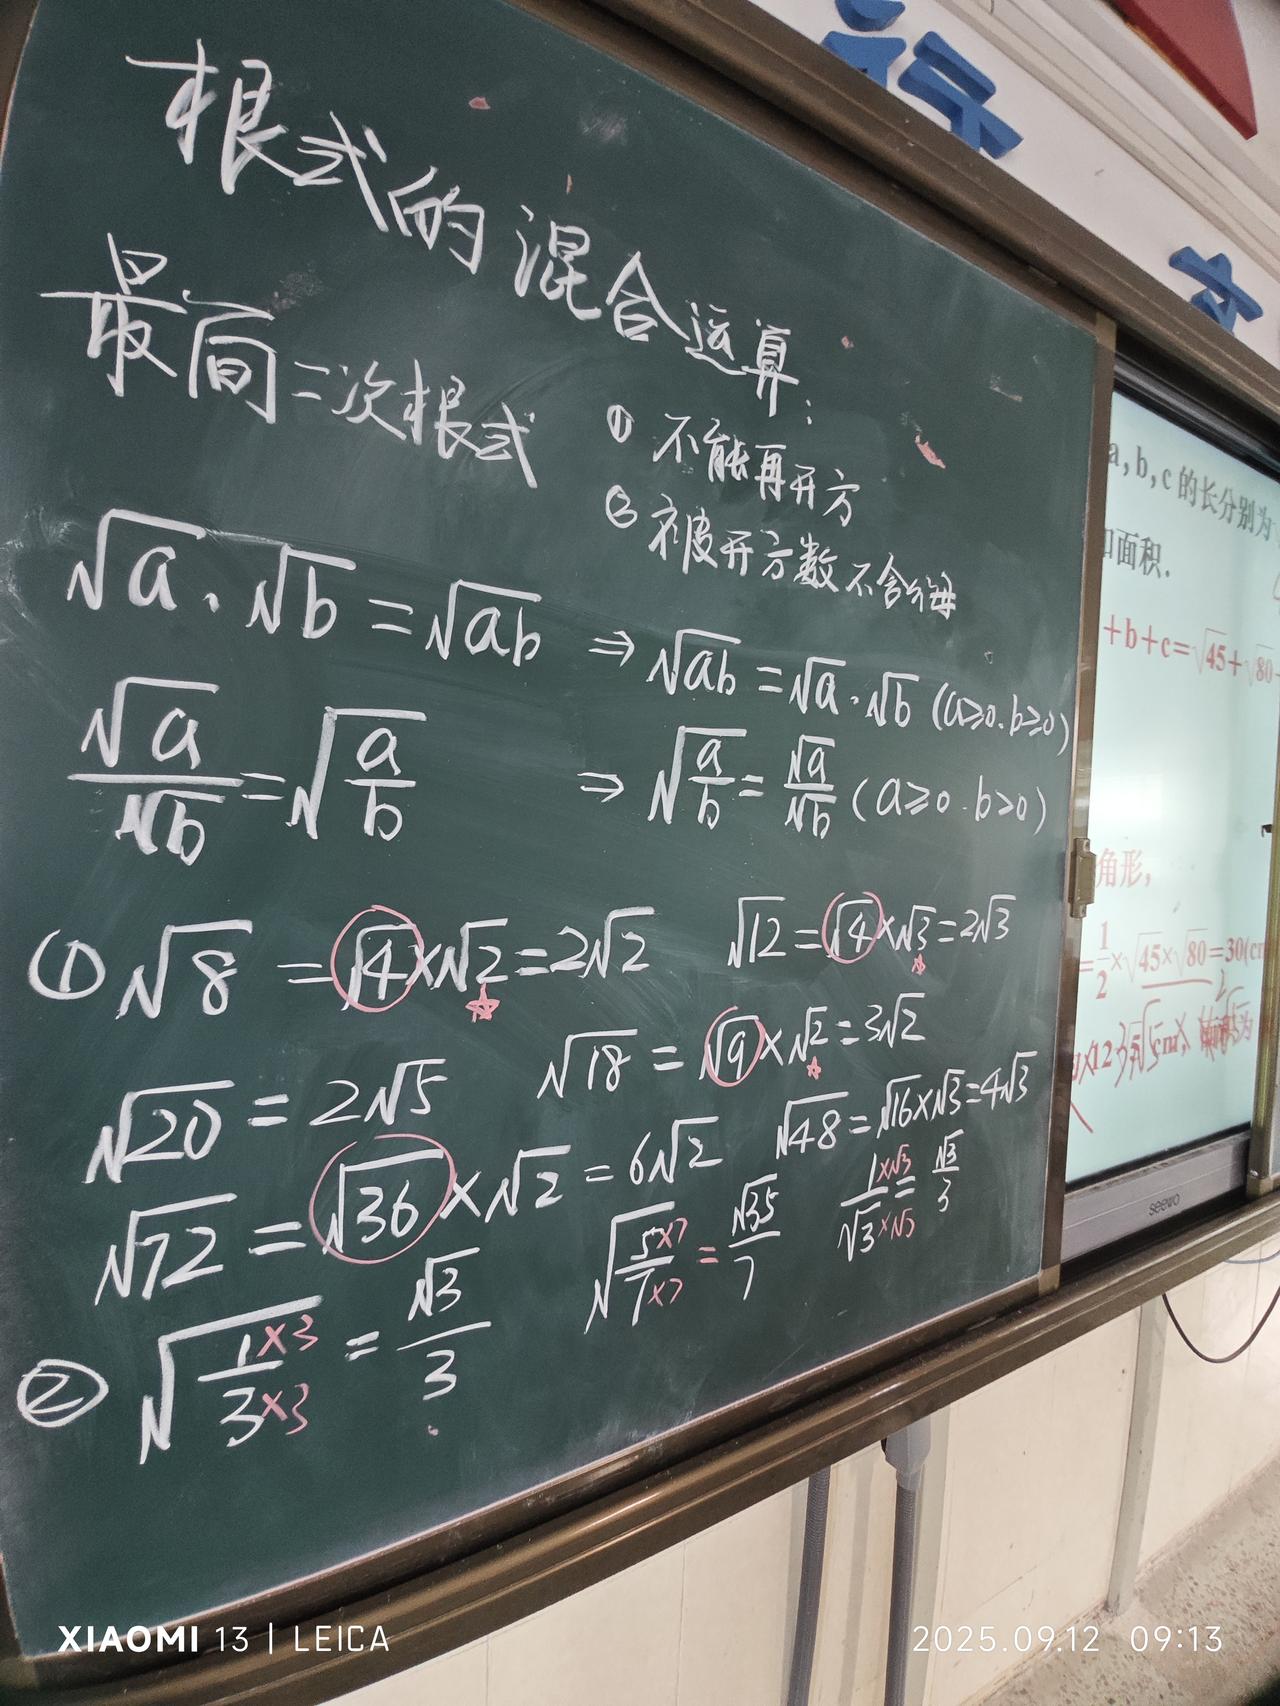 根式的混合运算:
最简二次根式
① 不能再开方
② 被开方数不含分母
√a·√b=√ab ⇒ √ab=√a·√b (a≥0.b≥0)
√a/√b=√(a/b) ⇒ √(a/b)=√a/√b (a≥0.b>0)
① √8=√4×√2=2√2 √12=√4×√3=2√3
√20=2√5 √18=√9×√2=3√2
√72=√36×√2=6√2 √48=√16×√3=4√3
② √(1×3/3×3)=√3/3 √(5×7/7×7)=√35/7 1×√3/√3×√3=√3/3
a,b,c的长分别为
面积.
+b+c=√45+√80
角形,
=1/2×√45×√80=30(c
seewo
XIAOMI 13 | LEICA
2025.09.12 09:13